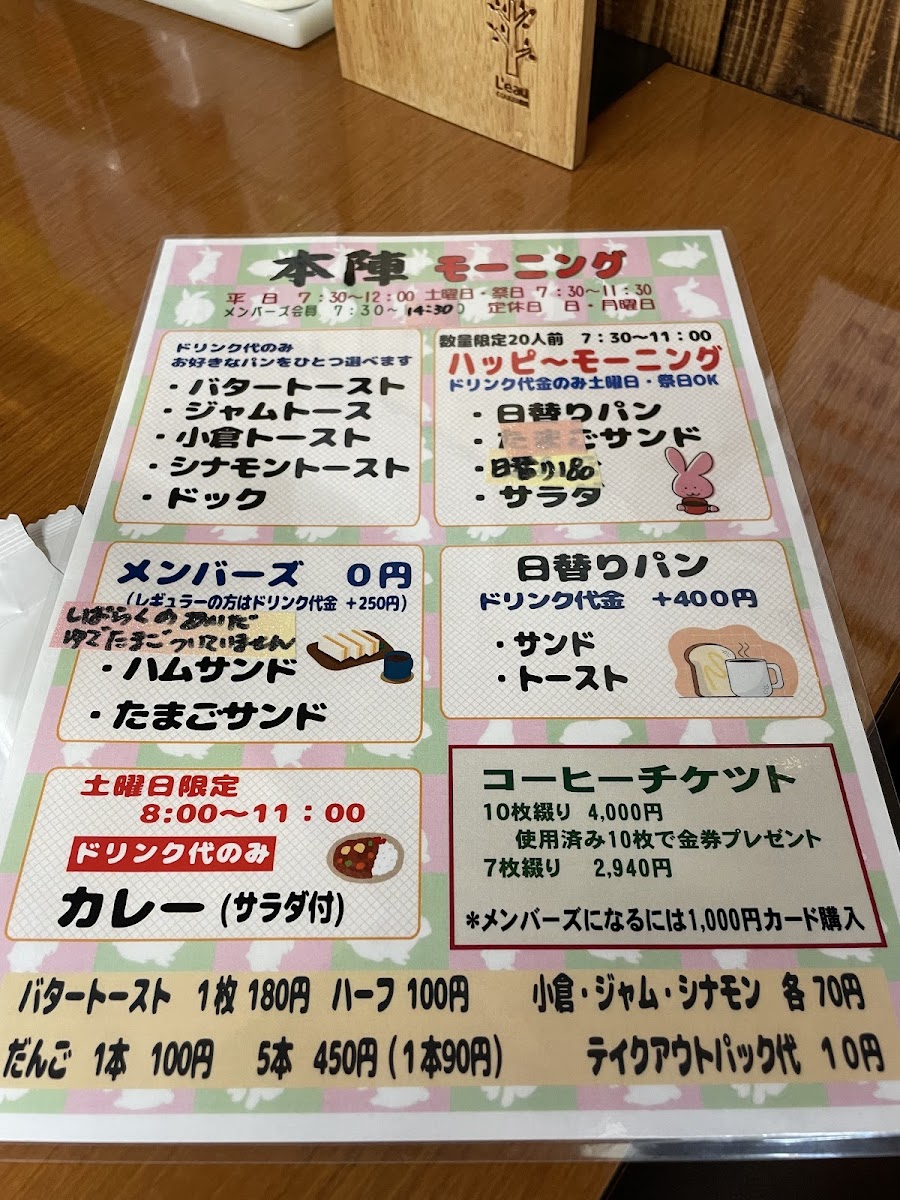 L'eau
本陣 モーニング
平日 7:30～12:00 土曜日・祭日 7:30～11:30
メンバーズ会員 7:30～14:30 定休日 日・月曜日
ドリンク代のみ
お好きなパンをひとつ選べます
・バタートースト
・ジャムトース
・小倉トースト
・シナモントースト
・ドック
数量限定20人前 7:30～11:00
ハッピ～モーニング
ドリンク代金のみ土曜日・祭日OK
・日替りパン
・たまごサンド
・日替り1品
・サラダ
メンバーズ 0円
(レギュラーの方はドリンク代金 +250円)
しばらくのあいだ
ゆでたまごついていません
・ハムサンド
・たまごサンド
日替りパン
ドリンク代金 +400円
・サンド
・トースト
土曜日限定
8:00～11:00
ドリンク代のみ
カレー(サラダ付)
コーヒーチケット
10枚綴り 4,000円
使用済み10枚で金券プレゼント
7枚綴り 2,940円
*メンバーズになるには1,000円カード購入
バタートースト 1枚 180円 ハーフ 100円 小倉・ジャム・シナモン 各70円
だんご 1本 100円 5本 450円(1本90円) テイクアウトパック代 10円